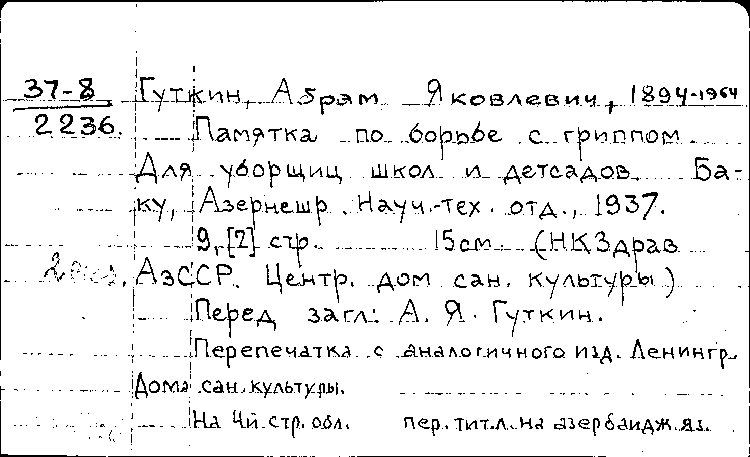 37-8 Гуткин, Абрам Яковлевич, 1894-1964
2236. Памятка по борьбе с гриппом.
Для уборщиц школ и детсадов. Ба-
ку, Азернешр. Науч.-тех. отд., 1937.
9, [2] стр. 15см. (НКЗдрав
АзССР. Центр. дом сан. культуры)
Перед загл: А. Я. Гуткин.
Перепечатка с аналогичного изд. Ленингр.
Дома сан. культуры.
На 4й стр. обл. пер. тит. л. на азербаидж. яз.